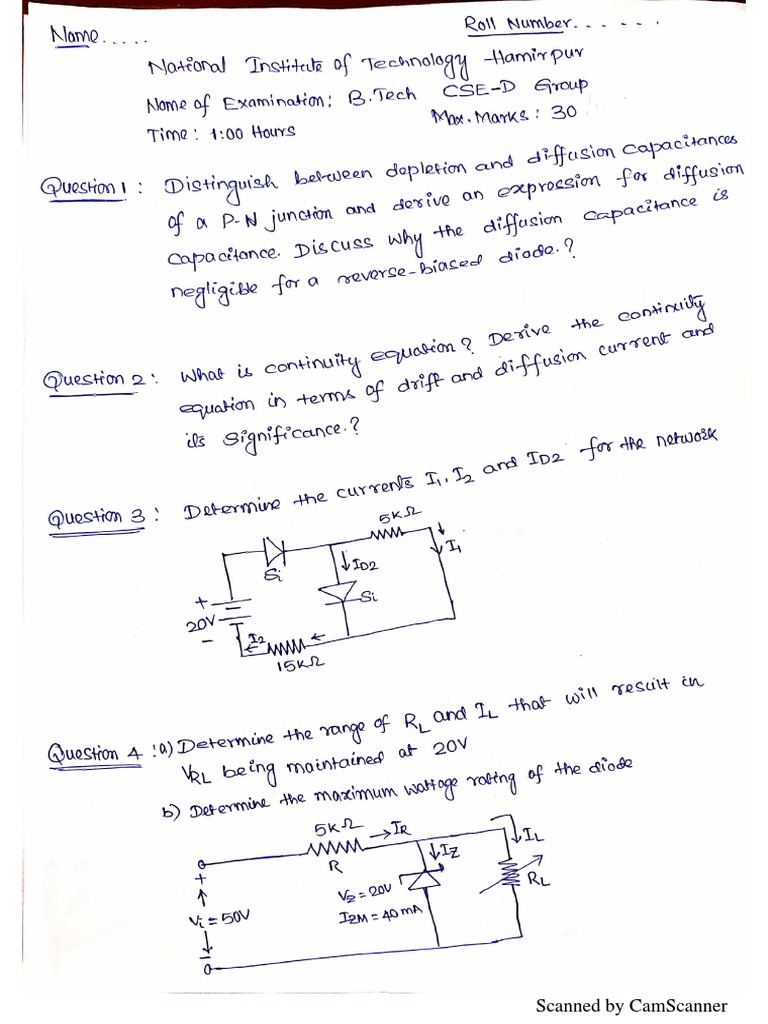 Name.....
Roll Number.......
National Institute of Technology -Hamirpur
Name of Examination: B.Tech CSE-D Group
Time: 1:00 Hours
Max. Marks: 30
Question 1: Distinguish between depletion and diffusion capacitances
of a P-N junction and derive an expression for diffusion
capacitance. Discuss why the diffusion capacitance is
negligible for a reverse-biased diode.?
Question 2: What is continuity equation? Derive the continuity
equation in terms of drift and diffusion current and
its significance.?
Question 3: Determine the currents I1, I2 and ID2 for the network
5KΩ
I1
Si
ID2
Si
+
20V
-
I2
15KΩ
Question 4: a) Determine the range of RL and IL that will result in
VRL being maintained at 20V
b) Determine the maximum wattage rating of the diode
5KΩ
IR
R
IL
IZ
+
VZ = 20V
RL
IZM = 40 mA
Vi = 50V
-
Scanned by CamScanner